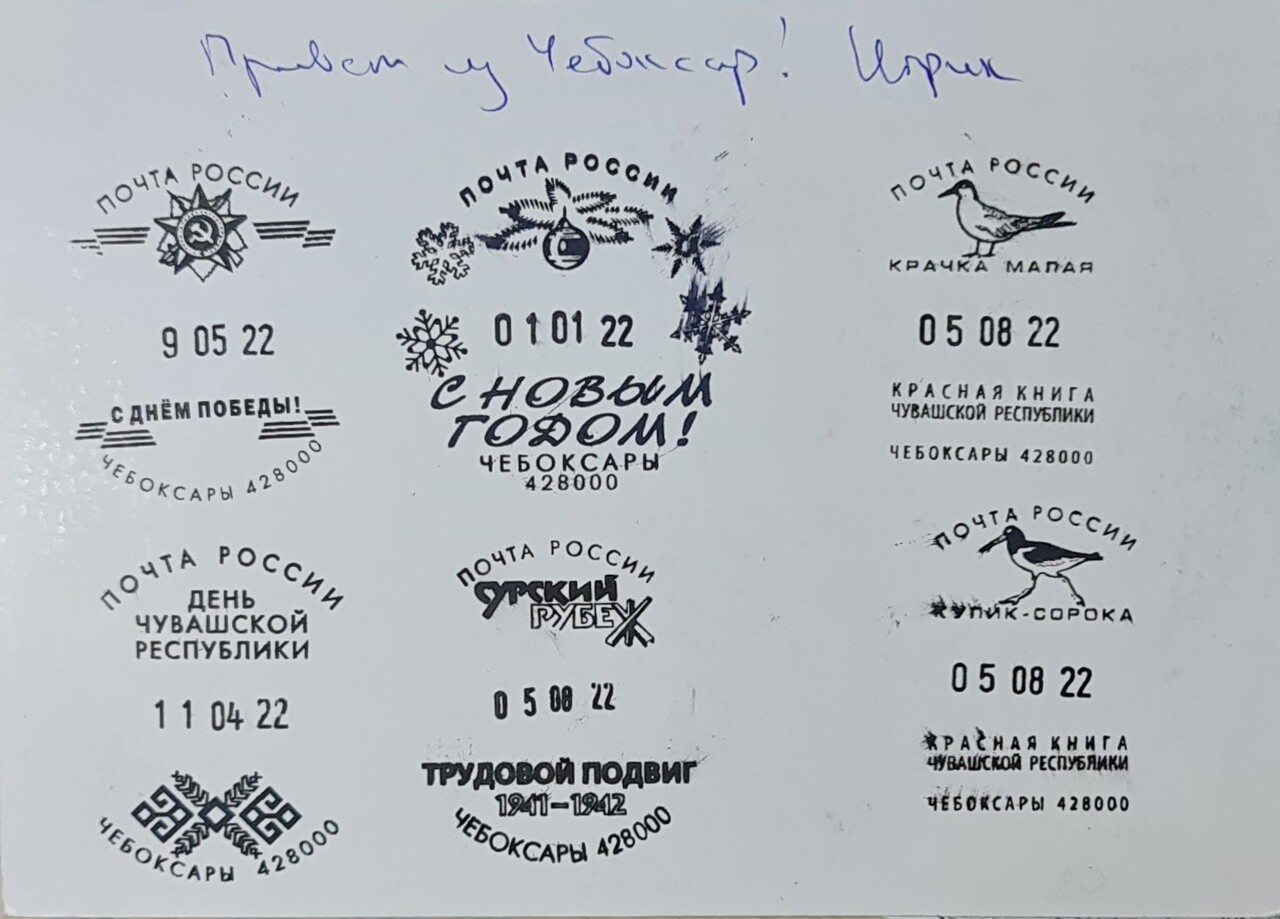 Привет из Чебоксар!
ПОЧТА РОССИИ
9 05 22
С ДНЁМ ПОБЕДЫ!
ЧЕБОКСАРЫ 428000
ПОЧТА РОССИИ
01 01 22
С НОВЫМ
ГОДОМ!
ЧЕБОКСАРЫ
428000
ПОЧТА РОССИИ
КРАЧКА МАЛАЯ
05 08 22
КРАСНАЯ КНИГА
ЧУВАШСКОЙ РЕСПУБЛИКИ
ЧЕБОКСАРЫ 428000
ПОЧТА РОССИИ
ДЕНЬ
ЧУВАШСКОЙ
РЕСПУБЛИКИ
11 04 22
ЧЕБОКСАРЫ 428000
ПОЧТА РОССИИ
СУРСКИЙ
РУБЕЖ
05 08 22
ТРУДОВОЙ ПОДВИГ
1941-1942
ЧЕБОКСАРЫ 428000
ПОЧТА РОССИИ
КУЛИК-СОРОКА
05 08 22
КРАСНАЯ КНИГА
ЧУВАШСКОЙ РЕСПУБЛИКИ
ЧЕБОКСАРЫ 428000